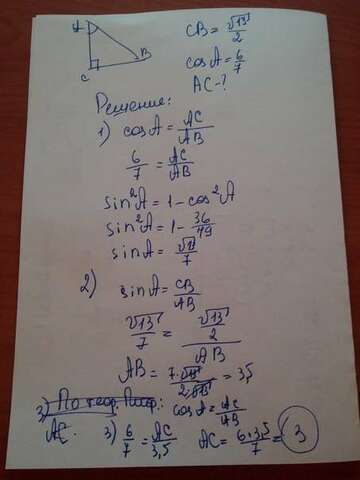 A
B
C
CB = √13/2
cos A = 6/7
AC - ?
Решение:
1) cos A = AC/AB
6/7 = AC/AB
sin²A = 1 - cos²A
sin²A = 1 - 36/49
sin A = √13/7
2) sin A = CB/AB
√13/7 = (√13/2)/AB
AB = 7·√13/2·√13 = 3,5
3) По теор. Пиф. cos A = AC/AB
AC. 3) 6/7 = AC/3,5 AC = 6·3,5/7 = 3